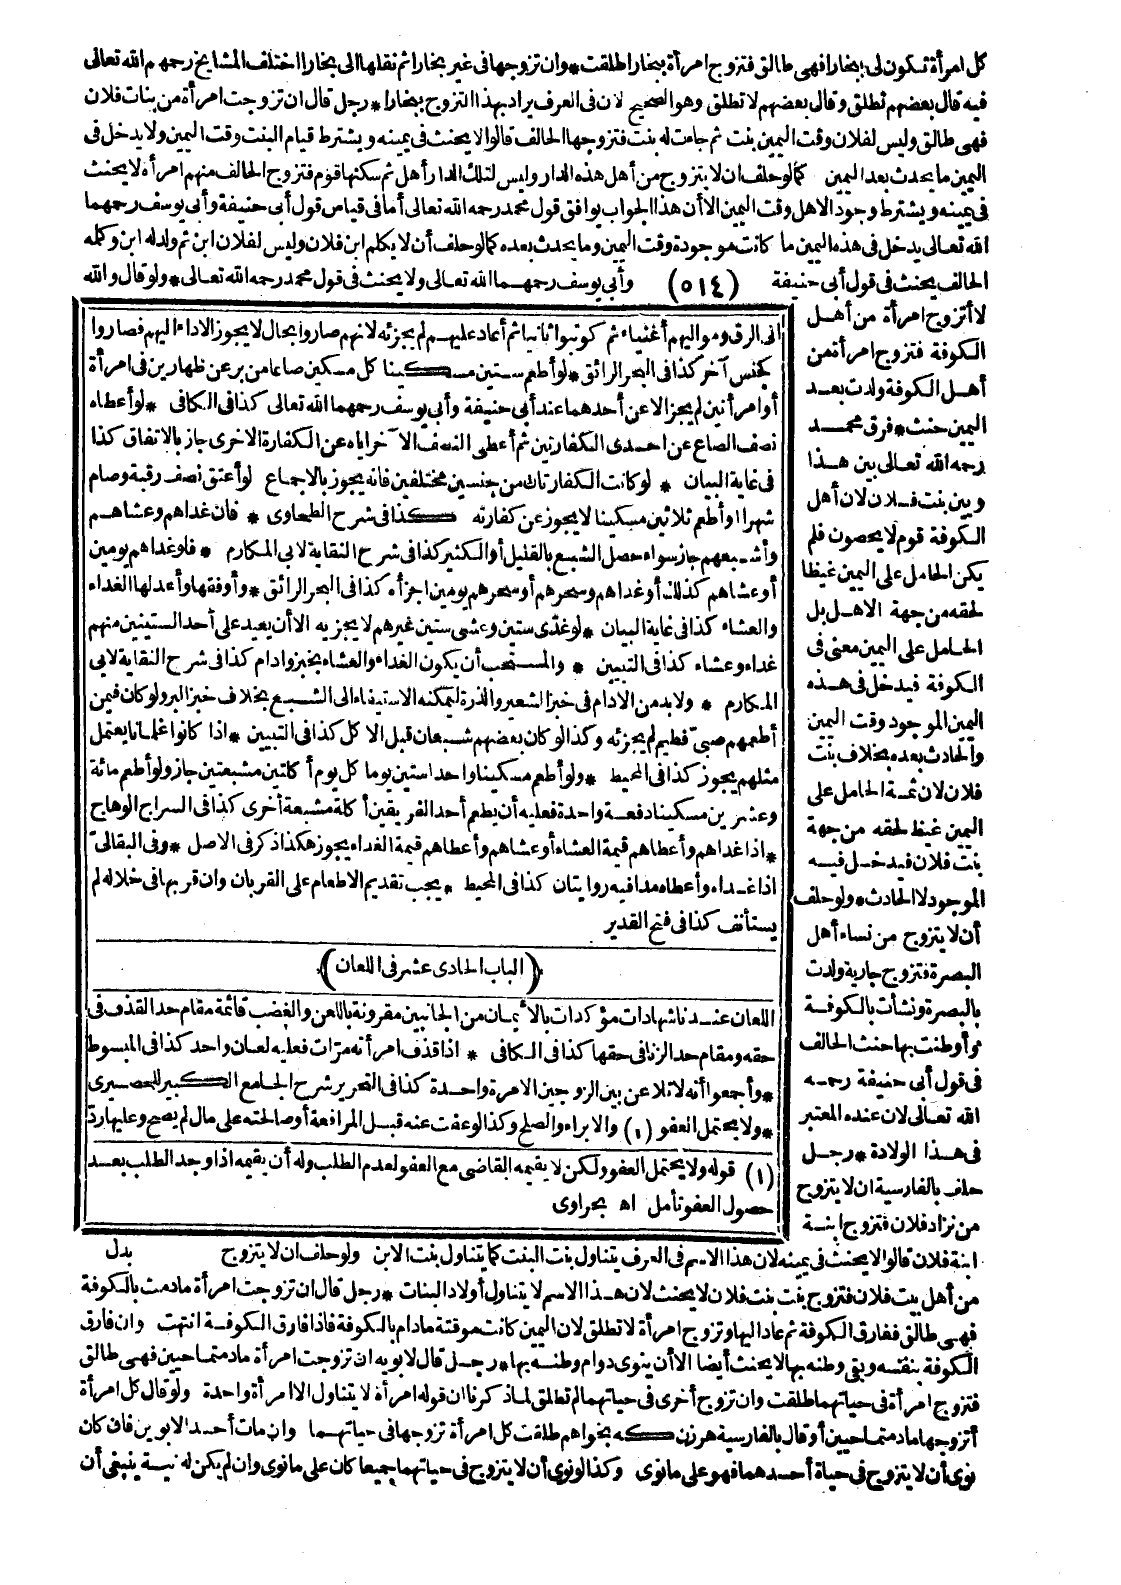 كل امرأة تكون لى ببخارا فهى طالق فتزوج امرأة ببخارا طلقت * وان تزوجها فى غير بخارا ثم نقلها الى بخارا اختلف المشايخ رحمهم الله تعالى
فيه قال بعضهم تطلق وقال بعضهم لا تطلق وهو الصحيح لان فى العرف يراد بهذا التزوج ببخارا * رجل قال ان تزوجت امرأة من بنات فلان
فهى طالق وليس لفلان وقت اليمين بنت ثم جاءت له بنت فتزوجها الحالف قالوا لا يحنث فى يمينه ويشترط قيام البنت وقت اليمين ولا يدخل فى
اليمين ما يحدث بعد اليمين كما لو حلف ان لا يتزوج من أهل هذه الدار وليس لتلك الدار أهل ثم سكنها قوم فتزوج الحالف منهم امرأة لا يحنث
فى يمينه ويشترط وجود الاهل وقت اليمين الا أن هذا الجواب يوافق قول محمد رحمه الله تعالى أما فى قياس قول أبى حنيفة وأبى يوسف رحمهما
الله تعالى يدخل فى هذه اليمين ما كانت موجودة وقت اليمين وما يحدث بعده كما لو حلف أن لا يكلم ابن فلان وليس لفلان ابن ثم ولد له ابن وكلمه
الحالف يحنث فى قول أبى حنيفة (٥١٤) وأبى يوسف رحمهما الله تعالى ولا يحنث فى قول محمد رحمه الله تعالى * ولو قال والله
لا أتزوج امرأة من أهل
الكوفة فتزوج امرأة من
أهل الكوفة ولدت بعد
اليمين حنث * فرق محمد
رحمه الله تعالى بين هذا
وبين بنت فلان لان أهل
الكوفة قوم لا يحصون فلم
يكن الحامل على اليمين غيظا
لحقه من جهة الاهل بل
الحامل على اليمين معنى فى
الكوفة فيدخل فى هذه
اليمين الموجود وقت اليمين
والحادث بعده بخلاف بنت
فلان لان ثمة الحامل على
اليمين غيظ لحقه من جهة
بنت فلان فيدخل فيه
الموجود لا الحادث * ولو حلف
أن لا يتزوج من نساء أهل
البصرة فتزوج جارية ولدت
بالبصرة ونشأت بالكوفة
وأوطنت بها حنث الحالف
فى قول أبى حنيفة رحمه
الله تعالى لان عنده المعتبر
فى هذا الولادة * رجل
حلف بالفارسية ان لا يتزوج
من نزاد فلان فتزوج ابنة
انى الرق ومواليهم أغنياء ثم كوتبوا ثانيا ثم أعاد عليهم لم يجزئه لانهم صاروا بحال لا يجوز الاداء اليهم فصاروا
كجنس آخر كذا فى البحر الرائق * لو أطعم ستين مسكينا كل مسكين صاعا من بر عن ظهارين فى امرأة
أو امرأتين لم يجز الا عن أحدهما عند أبى حنيفة وأبى يوسف رحمهما الله تعالى كذا فى الكافى * لو أعطاه
نصف الصاع عن احدى الكفارتين ثم أعطى النصف الآخر اياه عن الكفارة الاخرى جاز بالاتفاق كذا
فى غاية البيان * لو كانت الكفارتان من جنسين مختلفين فانه يجوز بالاجماع لو أعتق نصف رقبة وصام
شهرا أو أطعم ثلاثين مسكينا لا يجوز عن كفارته كذا فى شرح الطحاوى * فان غداهم وعشاهم
وأشبعهم جاز سواء حصل الشبع بالقليل أو الكثير كذا فى شرح النقاية لابى المكارم * فلو غداهم يومين
أو عشاهم كذلك أو غداهم وسحرهم أو سحرهم يومين اجزأه كذا فى البحر الرائق * وأوفقها وأعدلها الغداء
والعشاء كذا فى غاية البيان * لو غدى ستين وعشى ستين غيرهم لا يجزيه الا أن يعيد على أحد الستينين منهم
غداء وعشاء كذا فى التبيين * والمستحب أن يكون الغداء والعشاء بخبز وادام كذا فى شرح النقاية لابى
المكارم * ولا بد من الادام فى خبز الشعير والذرة ليمكنه الاستيفاء الى الشبع بخلاف خبز البر ولو كان فيمن
أطعمهم صبى فطيم لم يجزئه وكذا لو كان بعضهم شبعان قبل الاكل كذا فى التبيين * اذا كانوا غلمانا يعتمل
مثلهم يجوز كذا فى المحيط * ولو أطعم مسكينا واحدا ستين يوما كل يوم أكلتين مشبعتين جاز ولو أطعم مائة
وعشرين مسكينا دفعة واحدة فعليه أن يطعم أحد الفريقين أكلة مشبعة أخرى كذا فى السراج الوهاج
* اذا غداهم وأعطاهم قيمة العشاء أو عشاهم وأعطاهم قيمة الغداء يجوز هكذا ذكر فى الاصل * وفى البقالى
اذا غداه وأعطاه مدا فيه روايتان كذا فى المحيط * يجب تقديم الاطعام على القربان وان قربها فى خلاله لم
يستأنف كذا فى فتح القدير
(الباب الحادى عشر فى اللعان)
اللعان عندنا شهادات مؤكدات بالأيمان من الجانبين مقرونة باللعن والغضب قائمة مقام حد القذف فى
حقه ومقام حد الزنا فى حقها كذا فى الكافى * اذا قذف امرأته مرّات فعليه لعان واحد كذا فى المبسوط
* وأجمعوا أنه لا تلاعن بين الزوجين الا مرة واحدة كذا فى التحرير شرح الجامع الكبير للحصيرى
* ولا يحتمل العفو (١) والابراء والصلح وكذا لو عفت عنه قبل المرافعة أو صالحته على مال لم يصح وعليها ردّ
(١) قوله ولا يحتمل العفو ولكن لا يقيمه القاضى مع العفو لعدم الطلب وله أن يقيمه اذا وجد الطلب بعد
حصول العفو تأمل اه بحراوى
بدل
ابنة فلان قالوا لا يحنث فى يمينه لان هذا الاسم فى العرف يتناول بنت البنت كما يتناول بنت الابن ولو حلف ان لا يتزوج
من أهل بيت فلان فتزوج بنت بنت فلان لا يحنث لان هذا الاسم لا يتناول أولاد البنات * رجل قال ان تزوجت امرأة ما دمت بالكوفة
فهى طالق ففارق الكوفة ثم عاد اليها وتزوج امرأة لا تطلق لان اليمين كانت موقتة ما دام بالكوفة فاذا فارق الكوفة انتهت وان فارق
الكوفة بنفسه وبقى وطنه بها لا يحنث أيضا الا أن ينوى دوام وطنه بها * رجل قال لابويه ان تزوجت امرأة ما دمتما حيين فهى طالق
فتزوج امرأة فى حياتهما طلقت وان تزوج أخرى فى حياتهما لم تطلق لما ذكرنا ان قوله امرأة لا يتناول الا امرأة واحدة ولو قال كل امرأة
أتزوجها ما دمتما حيين أو قال بالفارسية هر زن كه بخواهم طلقت كل امرأة تزوجها فى حياتهما وان مات أحد الابوين فان كان
نوى أن لا يتزوج فى حياة أحدهما فهو على ما نوى وكذا لو نوى أن لا يتزوج فى حياتهما جميعا كان على ما نوى وان لم يكن له نية ينبغى أن